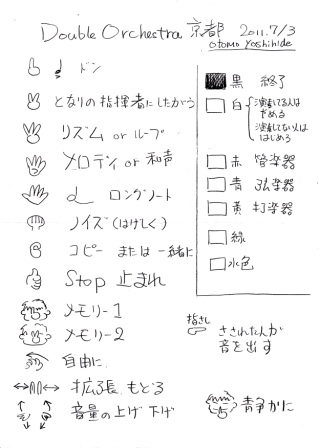 Double Orchestra 京都 2011.7/3
Otomo Yoshihide
ドン
となりの指揮者にしたがう
リズム or ループ
メロディ or 和声
ロングノート
ノイズ(はげしく)
コピー または 一緒に
Stop 止まれ
メモリー1
メモリー2
自由に
拡張 もどる
音量の上げ下げ
黒 終了
白 演奏してる人は
やめる
演奏してない人は
はじめる
赤 管楽器
青 弦楽器
黄 打楽器
緑
水色
指さし
さされた人が
音を出す
静かに